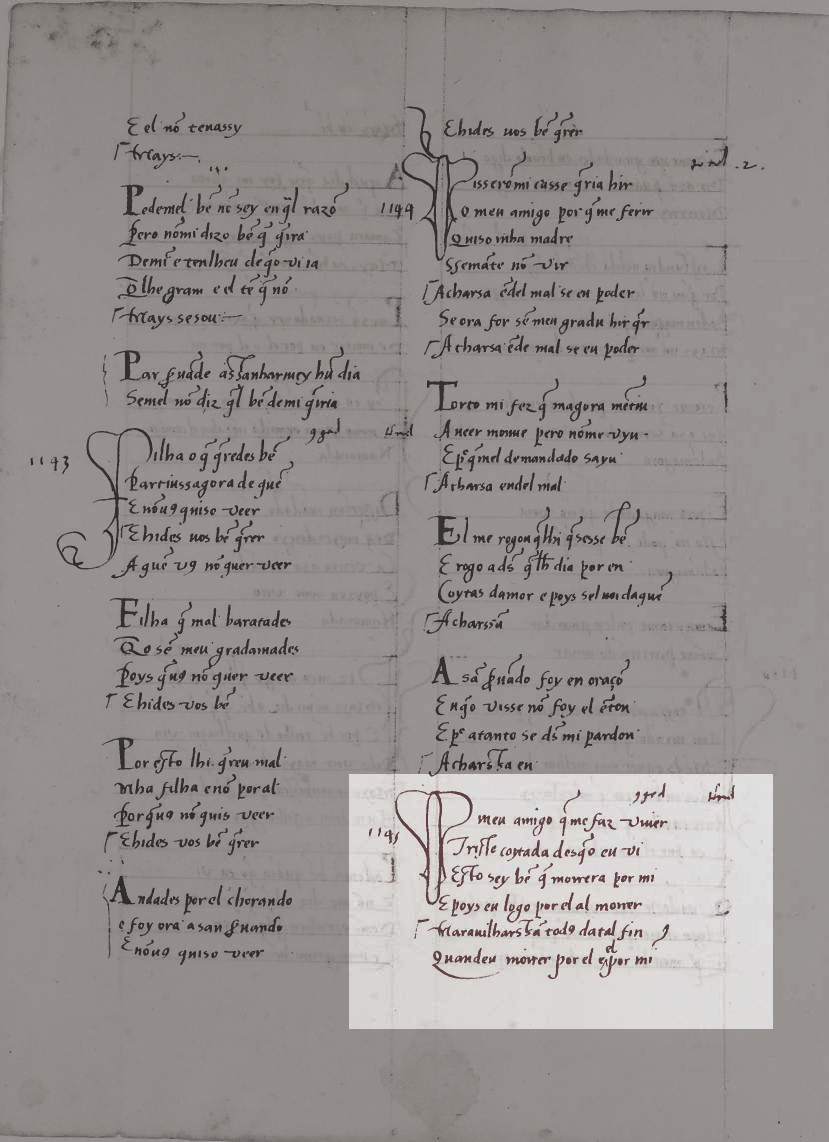 E el nõ tenassy
Maravilhar
Pedemel bẽ nõ sey en q̃l razõ
Pero nõmi dizo bẽ q̃ q̃ria
Demi e tenlheu de q̃o vi ia
Q̃lhe gram e el tẽ q̃ nõ
Par nãde assanharmey hũ dia
Semel nõ diz q̃l bẽ demi q̃iria
1143
Filha o q̃ q̃redes bẽ
Partiussagora de quẽ
Enõu9 quiso veer
Ehides vos bẽ q̃rer
A quẽ v9 nõ quer veer
Filha q̃ mal baratades
Q̃o sẽ meu gradamades
Poys q̃u9 nõ quer veer
Ehides vos bẽ
Por esto lhi q̃reu mal
Mha filha e nõ por al
Porq̃u9 nõ quis veer
Ehides vos bẽ q̃rer
Andades por el chorando
e foy ora a san seruando
Enõu9 quiso veer
Ehides vos bẽ q̃rer
1144
Disserõmi ca sse q̃ria hir
O meu amigo por q̃ me ferir
Quiso mha madre
Ssemãte nõ vir
Acharsa ẽdel mal se eu poder
Se ora for sẽ meu gradu hir q̃r
Acharsa ẽde mal se eu poder
Torto mi fez q̃ magora mẽtiu
A veer mouue pero nõme vyu
E p̃q̃ mel demandado sayu
Acharsa endel mal
El me rogou q̃lhi q̃sesse bẽ
E rogo a ds̃ q̃lh dia por en
Coytas damor e poys sel uai daquẽ
Acharssã
A sã seruãdo foy en oraçõ
Enq̃o visse nõ foy el ẽton
E p̃ atanto se ds̃ mi pardon
Acharsa en
1145
O meu amigo q̃ me faz viuer
Triste coytada desq̃o eu vi
Esto sey bẽ q̃ morrera por mi
E poys eu logo por el al morrer
Marauilharsã tod9 datal fin
Quandeu morrer por el e el por mi